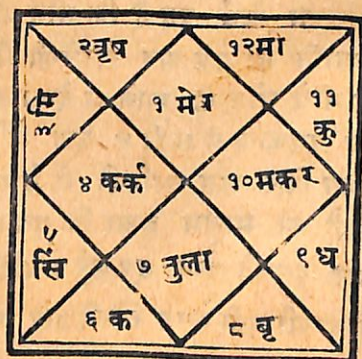 २वृष
१२मी
मि
३
१ मेष
११
कु
४ कर्क
१०मकर
५
सिं
७ तुला
९ ध
६ क
८ वृ